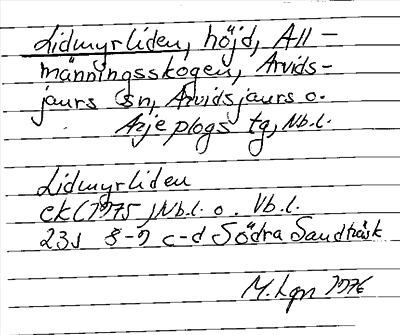 Lidmyrliden, höjd, All-
männingsskogen, Arvids-
jaurs sn, Arvidsjaurs o.
Arjeplogs tg, Nb.l.
Lidmyrliden
ek (1975) Nb.l. o. Vb.l.
23J 8-9 c-d Södra Sandträsk
M. Lgn 1976